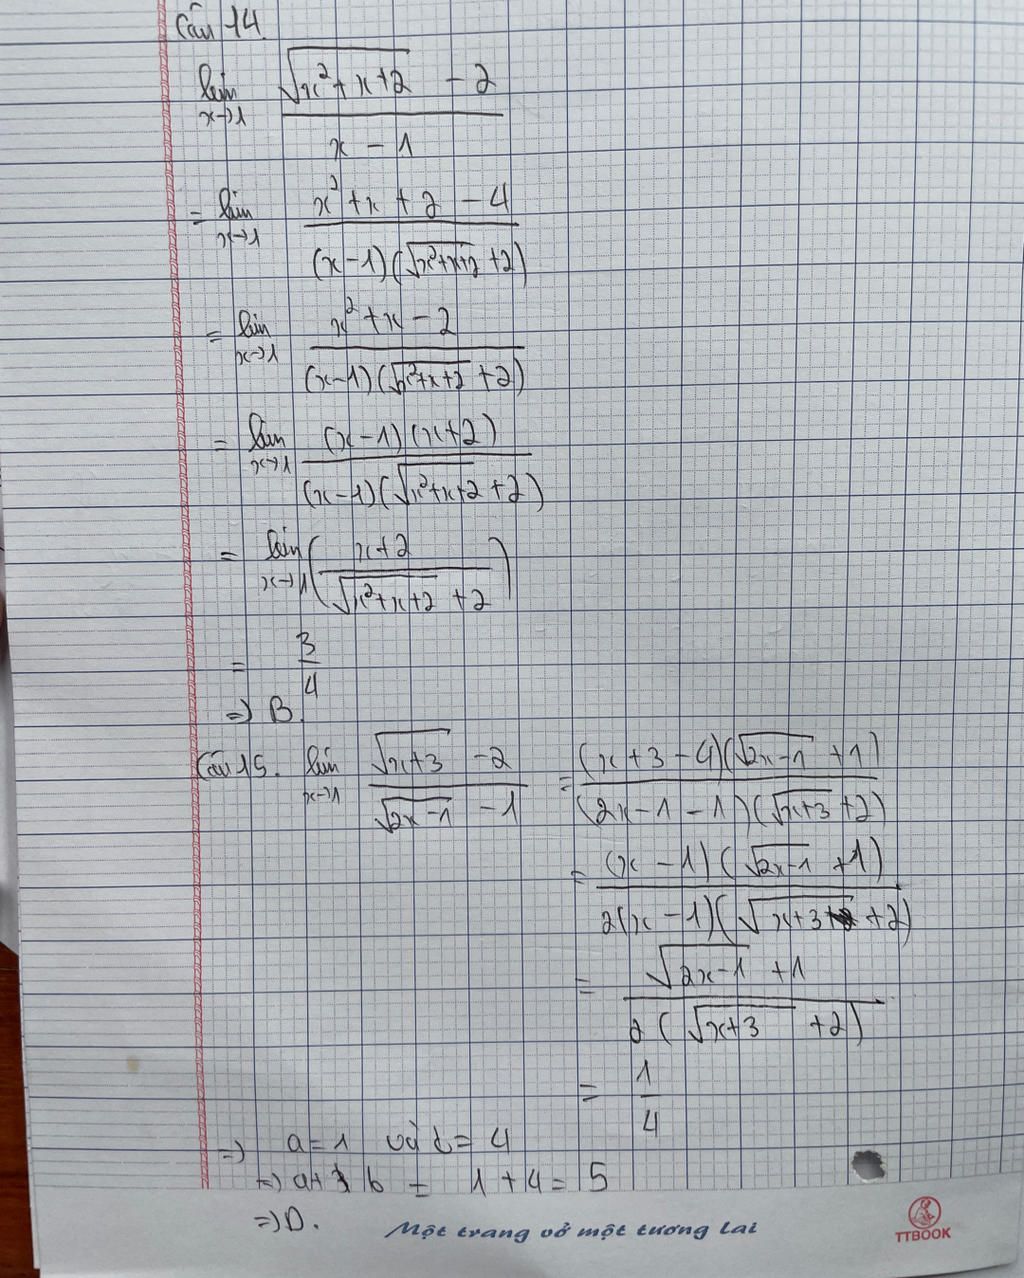 Câu 14.
lim x→1 (√(x²+x+2) - 2)/(x - 1)
= lim x→1 (x²+x+2-4)/((x-1)(√(x²+x+2)+2))
= lim x→1 (x²+x-2)/((x-1)(√(x²+x+2)+2))
= lim x→1 ((x-1)(x+2))/((x-1)(√(x²+x+2)+2))
= lim x→1 ((x+2)/(√(x²+x+2)+2))
= 3/4
=> B.
Câu 15. lim x→1 (√(x+3) - 2)/(√(2x-1) - 1) = ((x+3-4)(√(2x-1)+1))/((2x-1-1)(√(x+3)+2))
= ((x-1)(√(2x-1)+1))/(2(x-1)(√(x+3)+2))
= (√(2x-1)+1)/(2(√(x+3)+2))
= 1/4
=> a=1 và b=4
=> a+b = 1+4=5
=> D.
Một trang vở một tương lai
TTBOOK